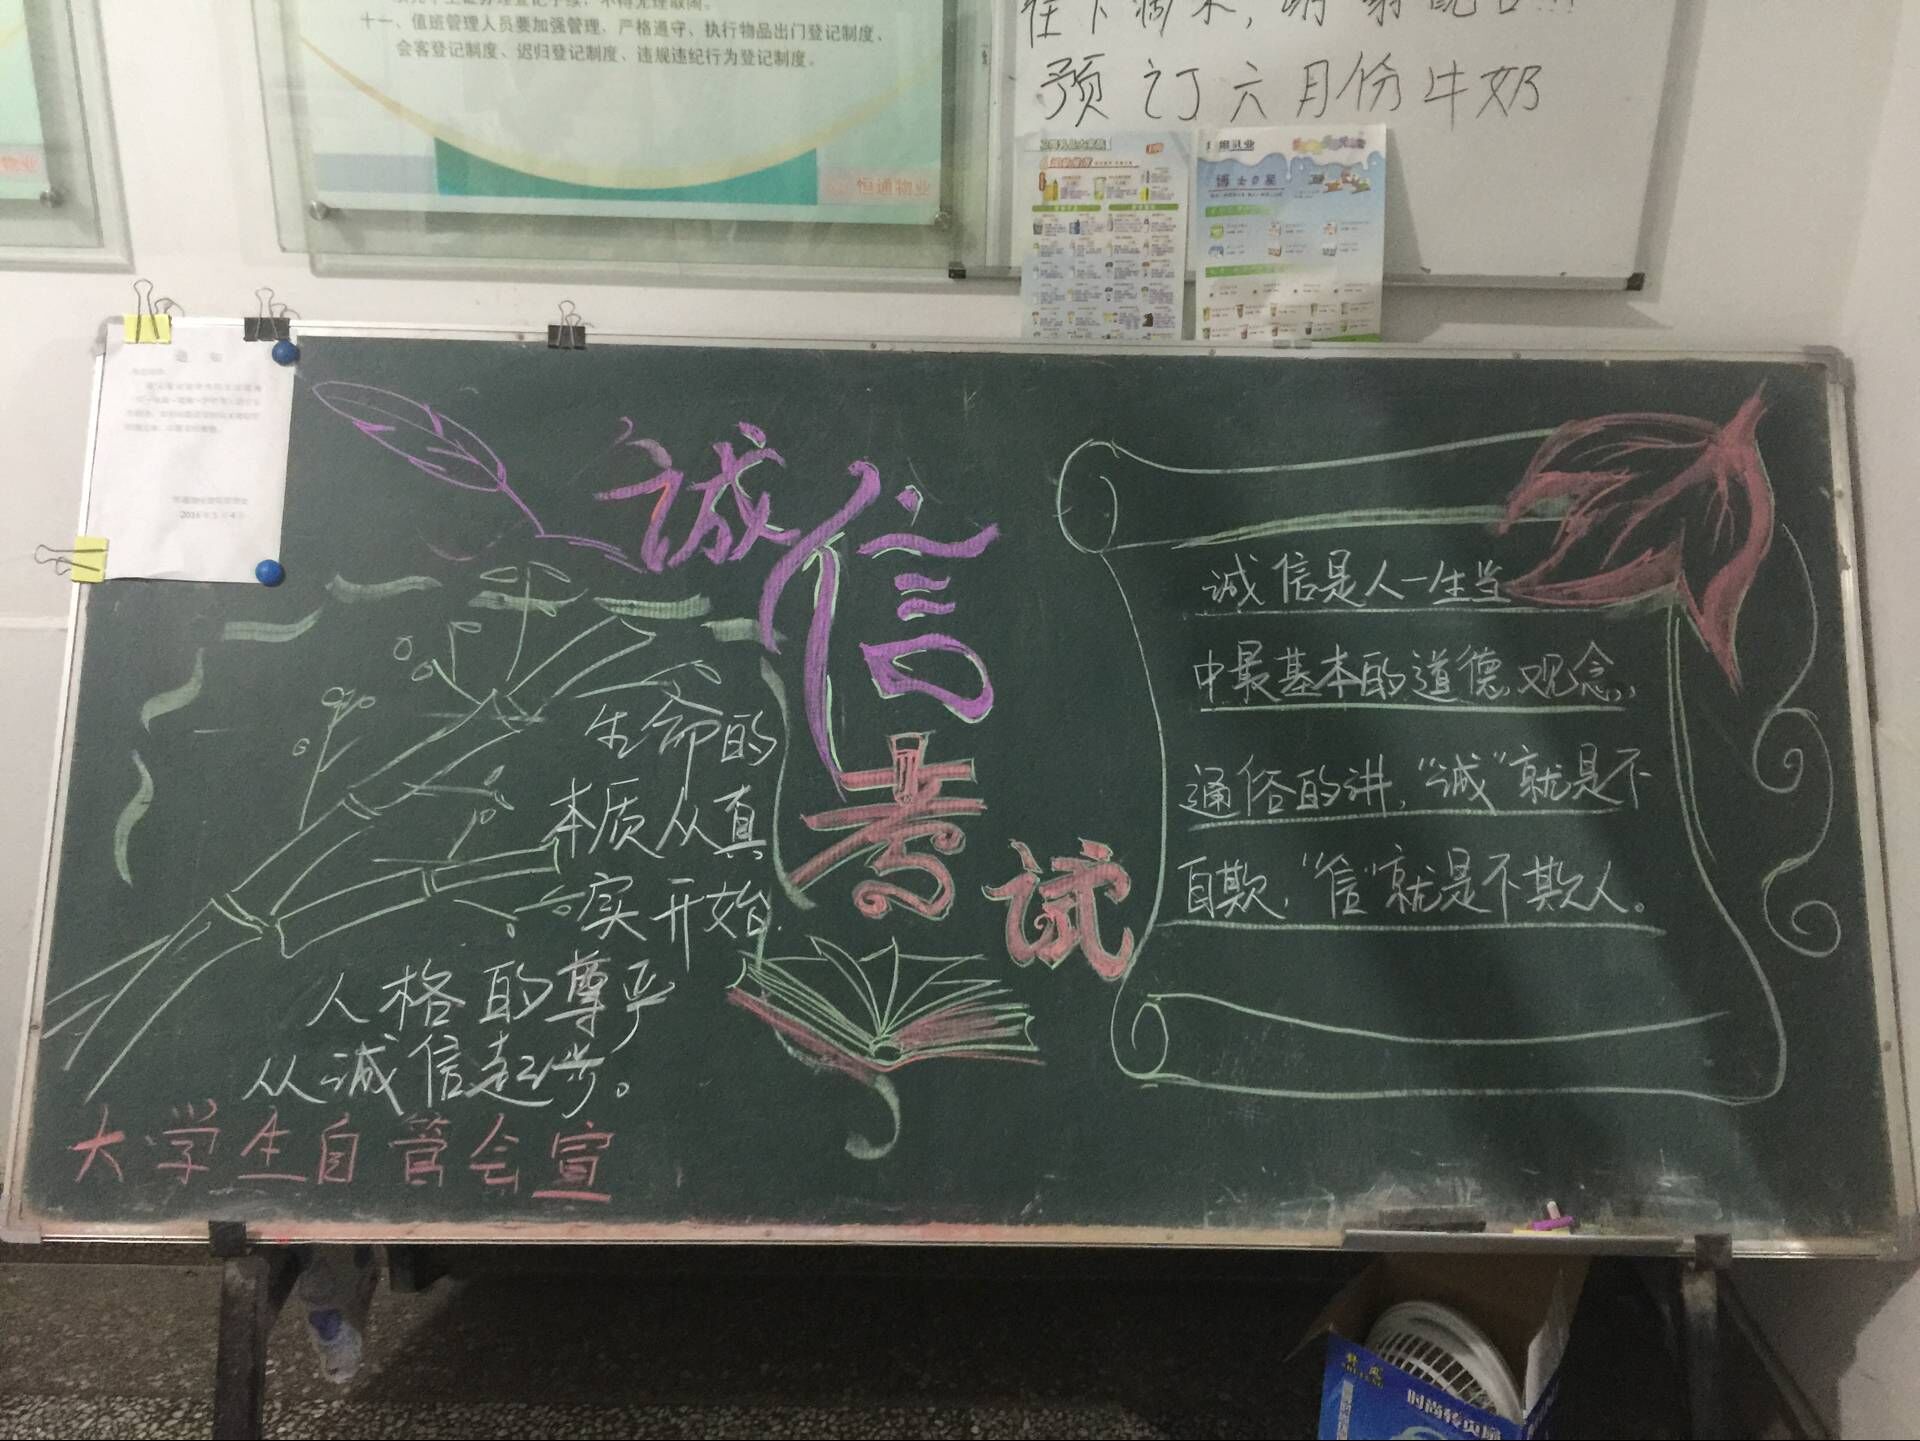 十一、值班管理人员要加强管理，严格遵守、执行物品出门登记制度、
会客登记制度、迟归登记制度、违规违纪行为登记制度。
恒通物业
物业
预订六月份牛奶
博士日星
通 知
诚信
考试
生命的
本质从真
实开始.
人格的尊严
从诚信起步。
大学生自管会宣
诚信是人一生当
中最基本的道德观念,
通俗的讲,“诚”就是不
自欺,“信”就是不欺人。
时尚转页扇